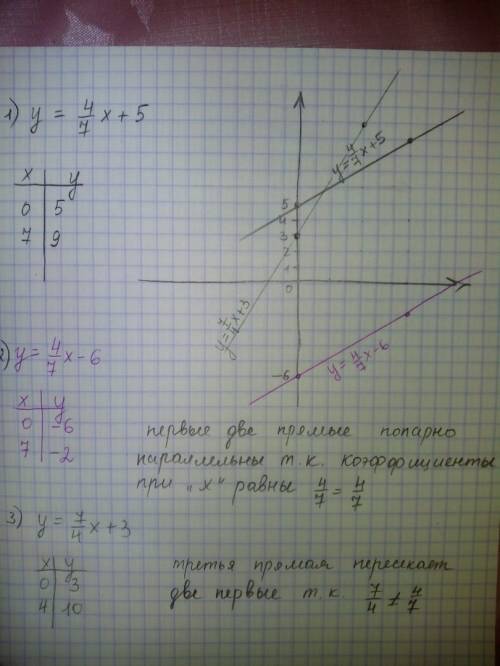 1) y = 4/7 x + 5
x | y
0 | 5
7 | 9
y = 4/7 x + 5
5
4
3
2
1
0
y = 7/4 x + 3
-6
y = 4/7 x - 6
2) y = 4/7 x - 6
x | y
0 | -6
7 | -2
первые две прямые попарно
параллельны т.к. коэффициенты
при „x" равны 4/7 = 4/7
3) y = 7/4 x + 3
x | y
0 | 3
4 | 10
третья прямая пересекает
две первые т.к. 7/4 ≠ 4/7